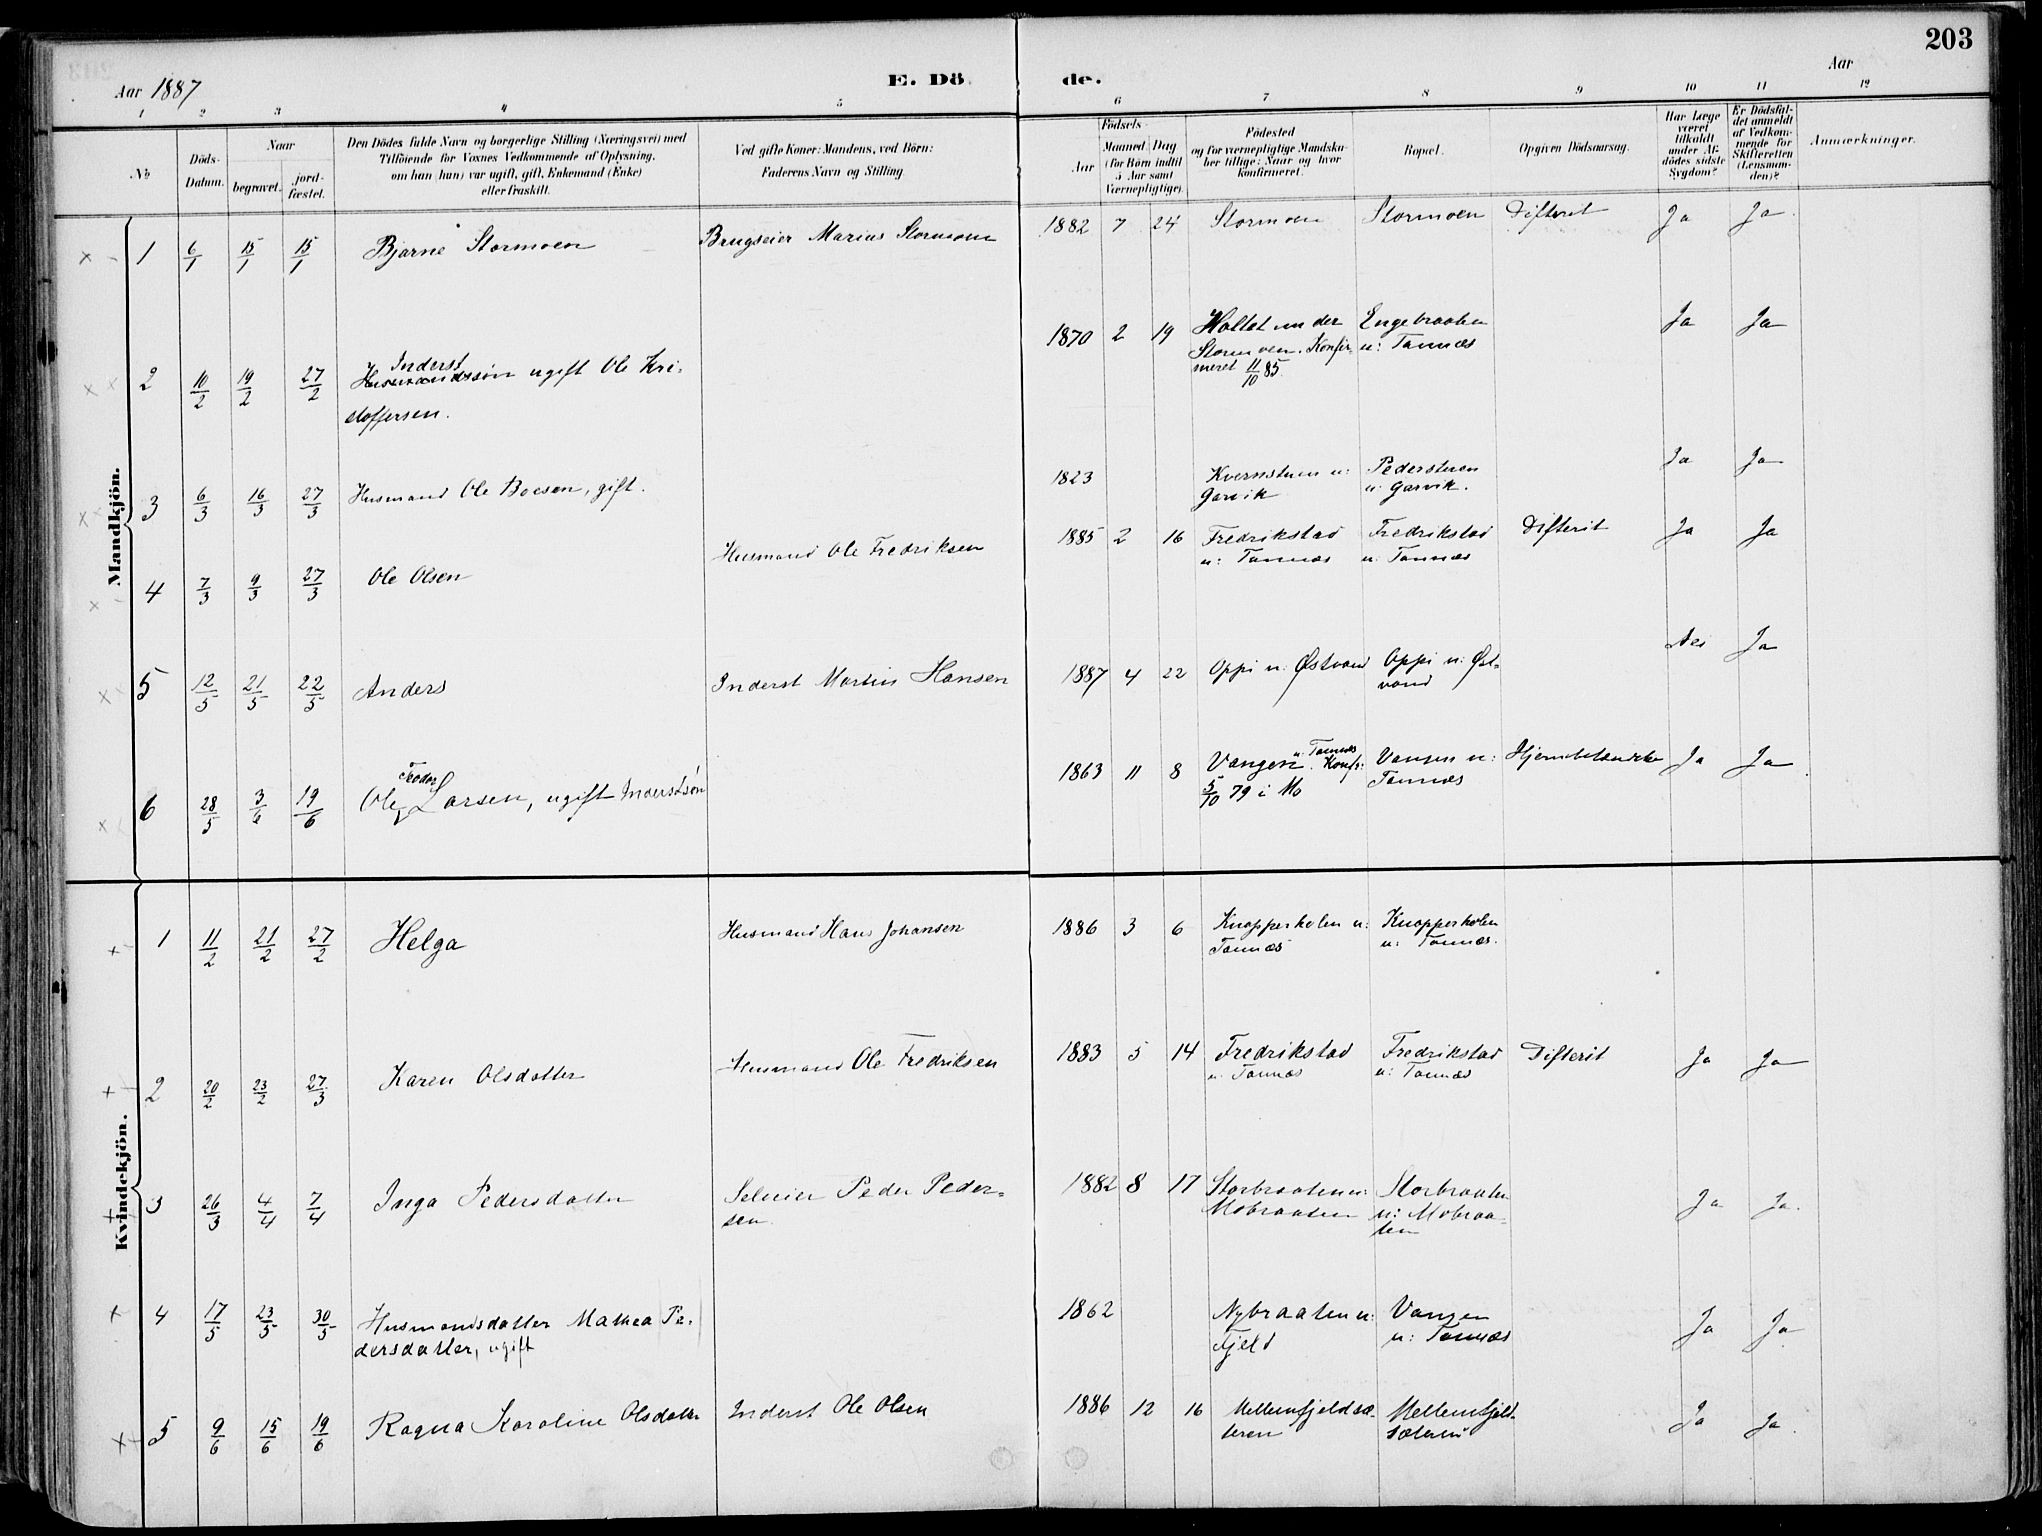 203
Aar 1887
E. Döde.
Aar
1 2 3 4 5 6 7 8 9 10 11 12
No
Döds-Datum.
Naar
begravet.
jord-fæstet.
Den Dödes fulde Navn og borgerlige Stilling (Næringsvei) med
Tilföiende for Voxnes Vedkommende af Oplysning,
om han (hun) var ugift, gift, Enkemand (Enke)
eller fraskilt.
Ved gifte Koner: Mandens, ved Börn:
Faderens Navn og Stilling.
Födsels-
Aar
Maaned Dag
(for Börn indtil
5 Aar samt
Værnepligtige).
Födested
og for værnepligtige Mandska-
ber tillige: Naar og hvor
konfirmeret.
Bopæl.
Opgiven Dödsaarsag.
Har Læge
været
tilkaldt
under Af-
dödes sidste
Sygdom?
Er Dödsfal-
det anmeldt
af Vedkom-
mende for
Skifteretten
(Lensman-
den)?
Anmærkninger.
Mandkjön.
1 6/1 15/1 15/1 Bjarne Stormoen Brugseier Marius Stormoen 1882 7 24 Stormoen Stormoen Difterit Ja Ja
2 10/2 19/2 27/2 Inderst Husmandssön ugift Ole Kri-
stoffersen.
1870 2 19 Holtet under Engebraaten
Stormoen. Konfir- u: Tannæs
meret 11/10 85.
Ja Ja
3 6/3 16/3 27/3 Husmand Ole Boesen, gift. 1823 Kvernstuen u: Pedersteuen
Garvik u: Garvik.
Ja Ja
4 7/3 9/3 27/3 Ole Olsen Husmand Ole Fredriksen 1885 2 16 Fredrikstad Fredrikstad Difterit Ja Ja
u: Tannæs u: Tannæs
5 12/5 21/5 22/5 Anders Inderst Martin Hansen 1887 4 22 Oppi u: Østvand Oppi u: Øst-
vand
Nei Ja
6 28/5 3/6 19/6 Ole Teodor Larsen, ugift Inderstsön 1863 11 8 Vangen u: Tannæs. Konfr: Vangen u:
5/10 79 i Mo Tannæs
Ja Ja
Kvindekjön.
1 11/2 21/2 27/2 Helga Husmand Hans Johansen 1886 3 6 Knapperholen u: Knapperholen
Tannæs u: Tannæs.
2 20/2 23/2 27/3 Karen Olsdatter Husmand Ole Fredriksen 1883 5 14 Fredrikstad Fredrikstad Difterit Ja Ja
u: Tannæs u: Tannæs
3 26/3 4/4 7/4 Inga Pedersdatter Selveier Peder Peder-
sen.
1882 8 17 Storbraaten u: Storbraaten
Mobraaten u: Mobraa-
ten
Ja Ja.
4 17/5 23/5 30/5 Husmandsdatter Mathea Pe-
dersdatter, ugift
1862 Nybraaten u: Vangen
Fjeld u: Tannæs
Ja Ja
5 9/6 15/6 19/6 Ragna Karoline Olsdatter Inderst Ole Olsen 1886 12 16 Mellemfjeldsæ- Mellemfjeld-
teren sæteren
Ja Ja.